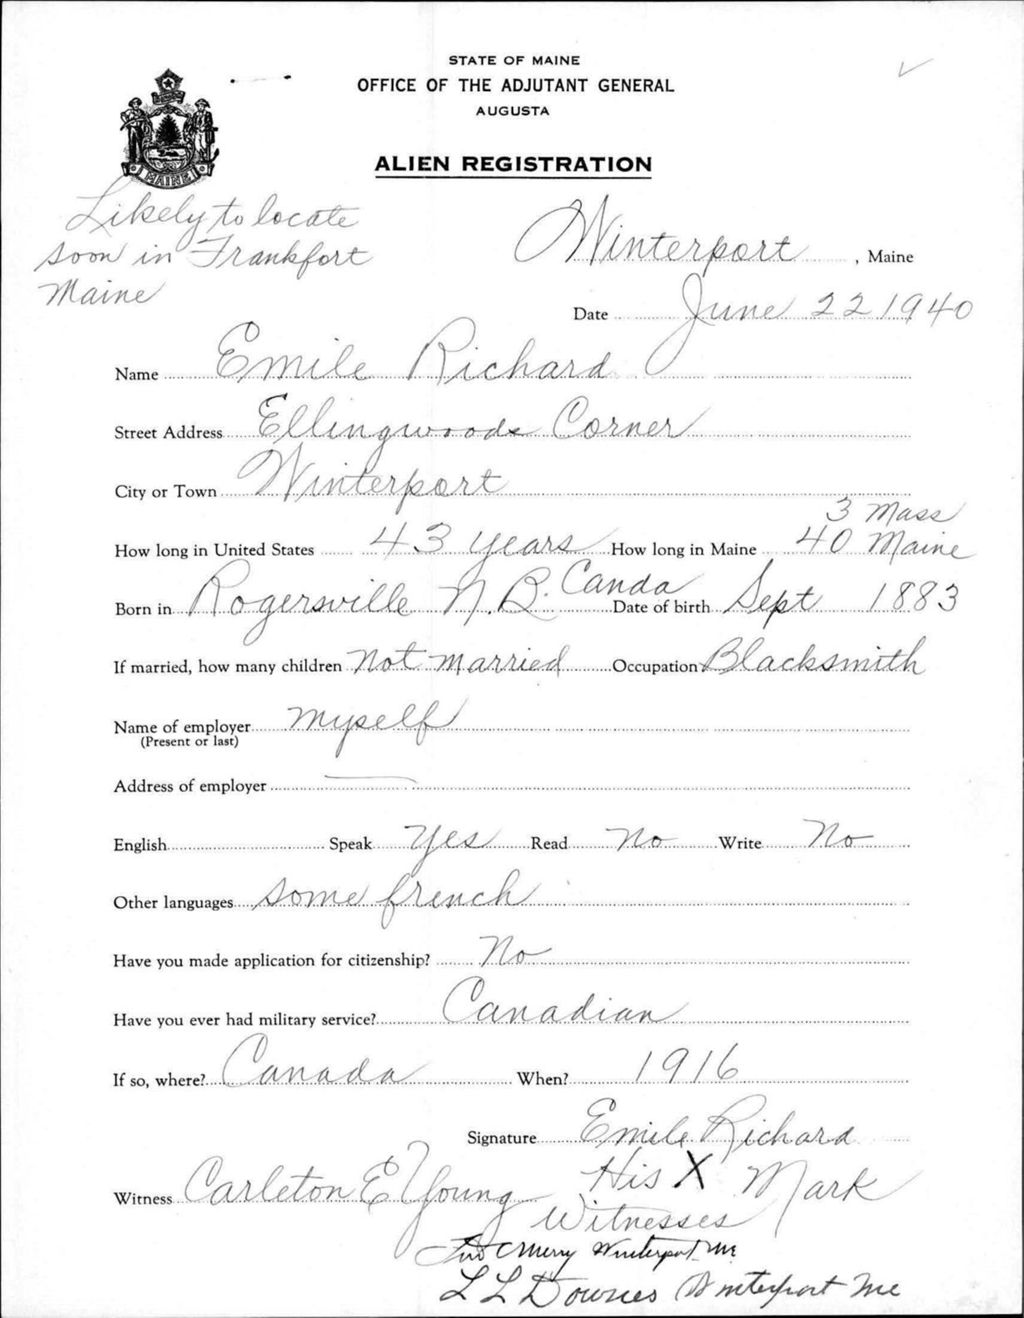 STATE OF MAINE
OFFICE OF THE ADJUTANT GENERAL
AUGUSTA
ALIEN REGISTRATION
MAINE
Likely to locate
soon in Frankfort
Maine
Winterport, Maine
Date June 22 1940
Name Emile Richard
Street Address Ellingwoods Corner
City or Town Winterport
3 Mass
How long in United States 43 years How long in Maine 40 Maine
Born in Rogersville N.B. Canda Date of birth Sept 1883
If married, how many children Not married Occupation Blacksmith
Name of employer myself
(Present or last)
Address of employer
English Speak Yes Read No Write No
Other languages some french
Have you made application for citizenship? No
Have you ever had military service? Canadian
If so, where? Canada When? 1916
Signature Emile Richard
His X Mark
Witness Carleton E Young
Witnesses
Winterport Me
L L Downes Winterport Me